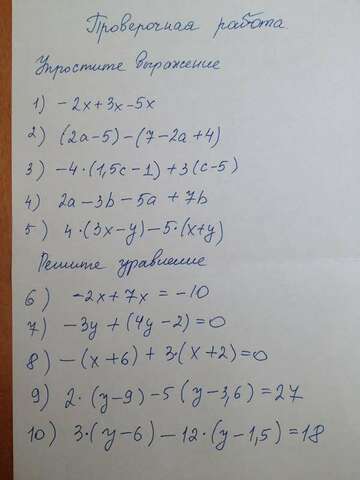 Проверочная работа
Упростите выражение
1) -2x+3x-5x
2) (2a-5)-(7-2a+4)
3) -4·(1,5c-1)+3(c-5)
4) 2a-3b-5a+7b
5) 4·(3x-y)-5·(x+y)
Решите уравление
6) -2x+7x=-10
7) -3y+(4y-2)=0
8) -(x+6)+3·(x+2)=0
9) 2·(y-9)-5(y-3,6)=27
10) 3·(y-6)-12·(y-1,5)=18